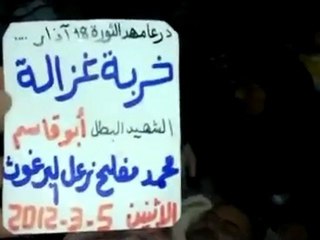 درعا مهد الثورة 18 آذار ....
خربة غزالة
الشهيد البطل أبو قاسم
محمد مفلح نزعل البرغوث
الاثنين 5-3-2012